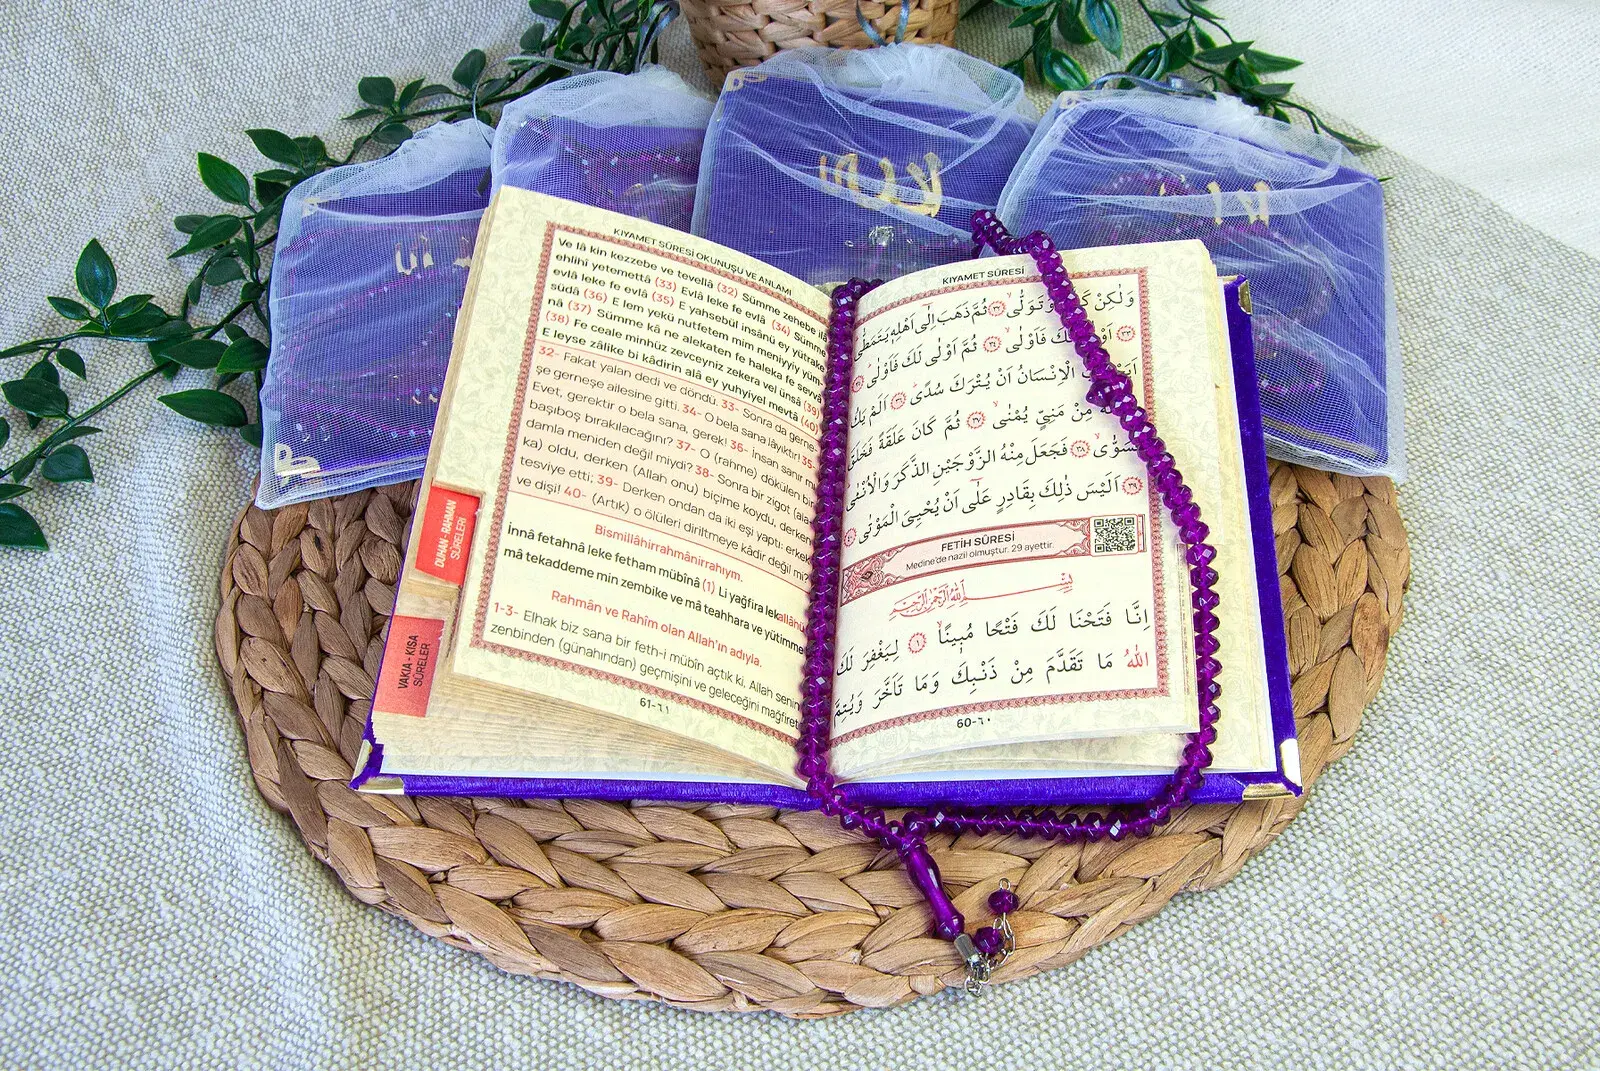 KIYAMET SÛRESİ OKUNUŞU VE ANLAMI
Ve lâ kin kezzebe ve tevellâ (32) Sümme zehebe ilâ
ehlihî yetemettâ (33) Evlâ leke fe evlâ (34) Sümme
evlâ leke fe evlâ (35) E yahsebül insânü ey yütrake
südâ (36) E lem yekü nutfetem mim meniyyiy yümn
nâ (37) Sümme kâ ne alekaten fe haleka fe sevvâ
(38) Fe ceale minhüz zevceyniz zekera vel ünsâ (39)
E leyse zâlike bi kâdirin alâ ey yuhyiyel mevtâ (40)
32- Fakat yalan dedi ve döndü. 33- Sonra da gerne
şe gerneşe ailesine gitti. 34- O bela sana lâyıktır! 35-
Evet, gerektir o bela sana, gerek! 36- İnsan sanır mı
başıboş bırakılacağını? 37- O (rahme) dökülen bir
damla meniden değil miydi? 38- Sonra bir zigot (ala-
ka) oldu, derken (Allah onu) biçime koydu, derken
tesviye etti; 39- Derken ondan da iki eşi yaptı: erkek
ve dişi! 40- (Artık) o ölüleri diriltmeye kâdir değil mi?
Bismillâhirrahmânirrahıym.
İnnâ fetahnâ leke fetham mübînâ (1) Li yağfira lekallâhü
mâ tekaddeme min zembike ve mâ teahhara ve yütimme
Rahmân ve Rahîm olan Allah'ın adıyla.
1-3- Elhak biz sana bir feth-i mübîn açtık ki. Allah senin
zenbinden (günahından) geçmişini ve geleceğini mağfiret
61-٦١
DUHAN - RAHMAN
SÛRELERİ
VAKIA - KISA
SÛRELER
KIYAMET SÛRESİ
وَلٰكِنْ وَتَوَلّٰىۙ ﴿٣٢﴾ ثُمَّ ذَهَبَ اِلٰٓى اَهْلِه۪ يَتَمَطّٰى
﴿٣٣﴾ لَكَ فَاَوْلٰىۙ ﴿٣٤﴾ ثُمَّ اَوْلٰى لَكَ فَاَوْلٰى
الْاِنْسَانُ اَنْ يُتْرَكَ سُدًى ﴿٣٦﴾ اَلَمْ يَكُ
مِنْ مَنِيٍّ يُمْنٰىۙ ﴿٣٧﴾ ثُمَّ كَانَ عَلَقَةً فَخَلَقَ
فَسَوّٰىۙ ﴿٣٨﴾ فَجَعَلَ مِنْهُ الزَّوْجَيْنِ الذَّكَرَ وَالْاُنْثٰى
﴿٣٩﴾ اَلَيْسَ ذٰلِكَ بِقَادِرٍ عَلٰٓى اَنْ يُحْيِيَ الْمَوْتٰى ﴿٤٠﴾
FETİH SÛRESİ
Medine'de nazil olmuştur. 29 ayettir.
بِسْمِ اللّٰهِ الرَّحْمٰنِ الرَّح۪يمِ
اِنَّا فَتَحْنَا لَكَ فَتْحًا مُب۪ينًاۙ ﴿١﴾ لِيَغْفِرَ لَكَ
اللّٰهُ مَا تَقَدَّمَ مِنْ ذَنْبِكَ وَمَا تَاَخَّرَ وَيُتِمَّ
60-٦٠